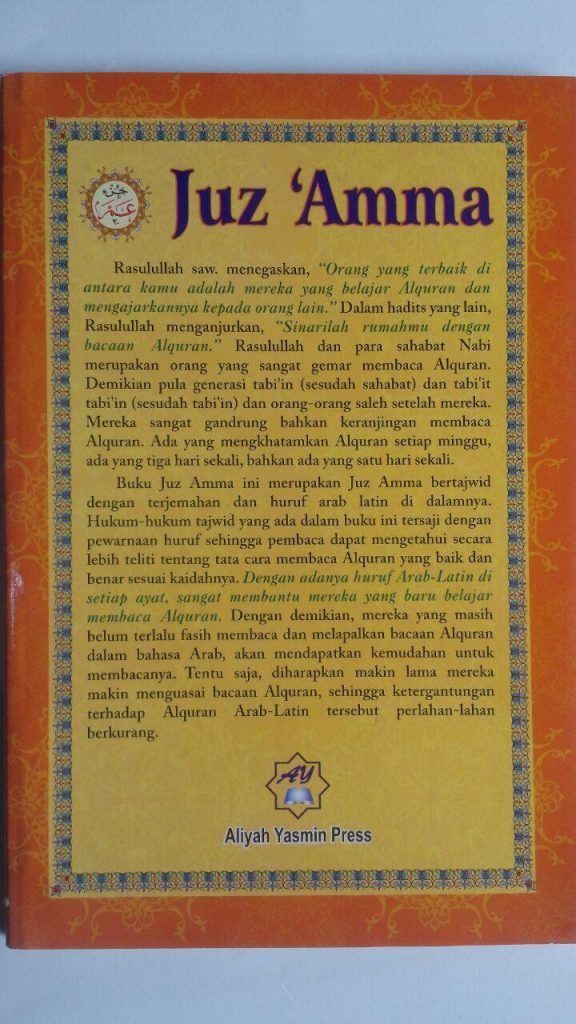 جزء
عم
٣٠
Juz ‘Amma
Rasulullah saw. menegaskan, “Orang yang terbaik di
antara kamu adalah mereka yang belajar Alquran dan
mengajarkannya kepada orang lain.” Dalam hadits yang lain,
Rasulullah menganjurkan, “Sinarilah rumahmu dengan
bacaan Alquran.” Rasulullah dan para sahabat Nabi
merupakan orang yang sangat gemar membaca Alquran.
Demikian pula generasi tabi'in (sesudah sahabat) dan tabi'it
tabi'in (sesudah tabi'in) dan orang-orang saleh setelah mereka.
Mereka sangat gandrung bahkan keranjingan membaca
Alquran. Ada yang mengkhatamkan Alquran setiap minggu,
ada yang tiga hari sekali, bahkan ada yang satu hari sekali.
Buku Juz Amma ini merupakan Juz Amma bertajwid
dengan terjemahan dan huruf arab latin di dalamnya.
Hukum-hukum tajwid yang ada dalam buku ini tersaji dengan
pewarnaan huruf sehingga pembaca dapat mengetahui secara
lebih teliti tentang tata cara membaca Alquran yang baik dan
benar sesuai kaidahnya. Dengan adanya huruf Arab-Latin di
setiap ayat, sangat membantu mereka yang baru belajar
membaca Alquran. Dengan demikian, mereka yang masih
belum terlalu fasih membaca dan melapalkan bacaan Alquran
dalam bahasa Arab, akan mendapatkan kemudahan untuk
membacanya. Tentu saja, diharapkan makin lama mereka
makin menguasai bacaan Alquran, sehingga ketergantungan
terhadap Alquran Arab-Latin tersebut perlahan-lahan
berkurang.
AY
Aliyah Yasmin Press